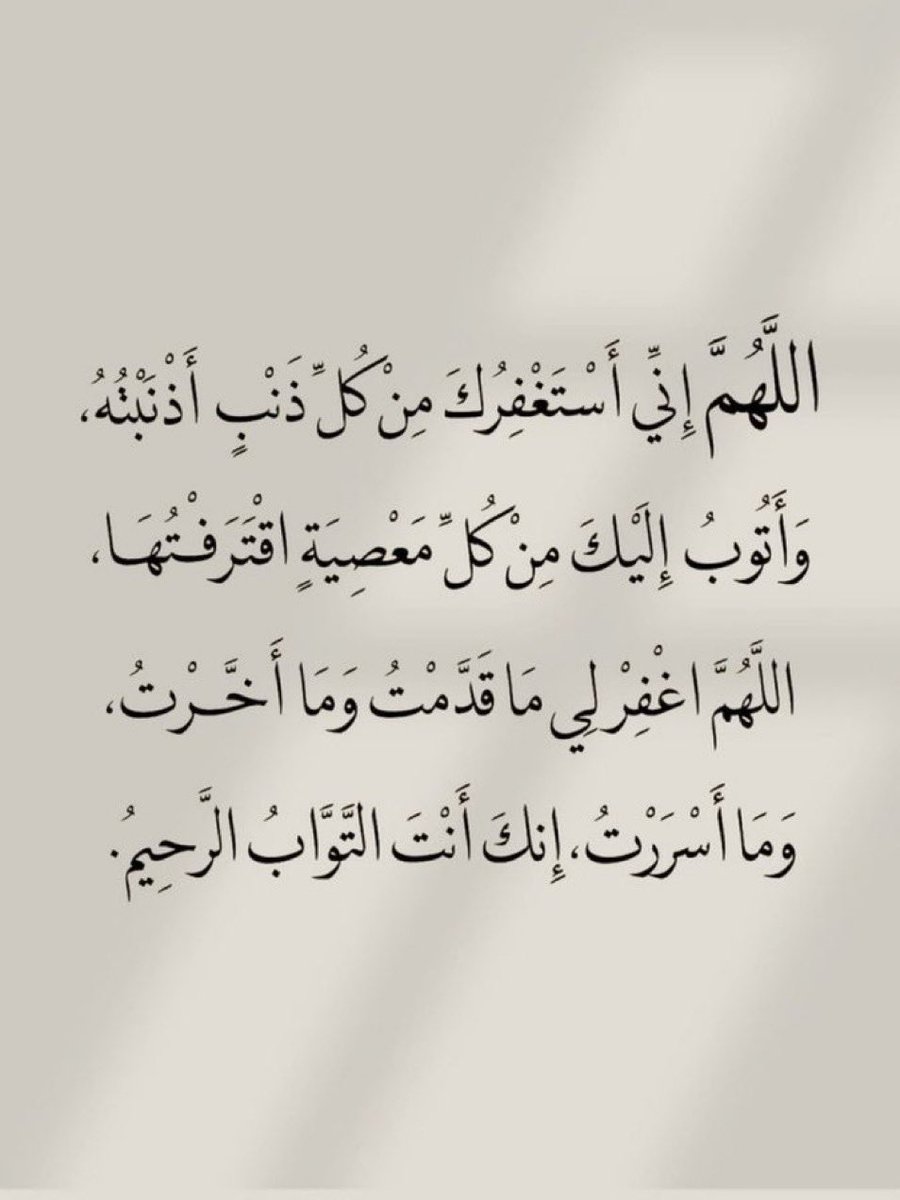 اللَّهُمَّ إِنِّي أَسْتَغْفِرُكَ مِنْ كُلِّ ذَنْبٍ أَذْنَبْتُهُ،
وَأَتُوبُ إِلَيْكَ مِنْ كُلِّ مَعْصِيَةٍ اقْتَرَفْتُهَا،
اللَّهُمَّ اغْفِرْ لِي مَا قَدَّمْتُ وَمَا أَخَّرْتُ،
وَمَا أَسْرَرْتُ، إِنكَ أَنْتَ التَّوَّابُ الرَّحِيمُ.